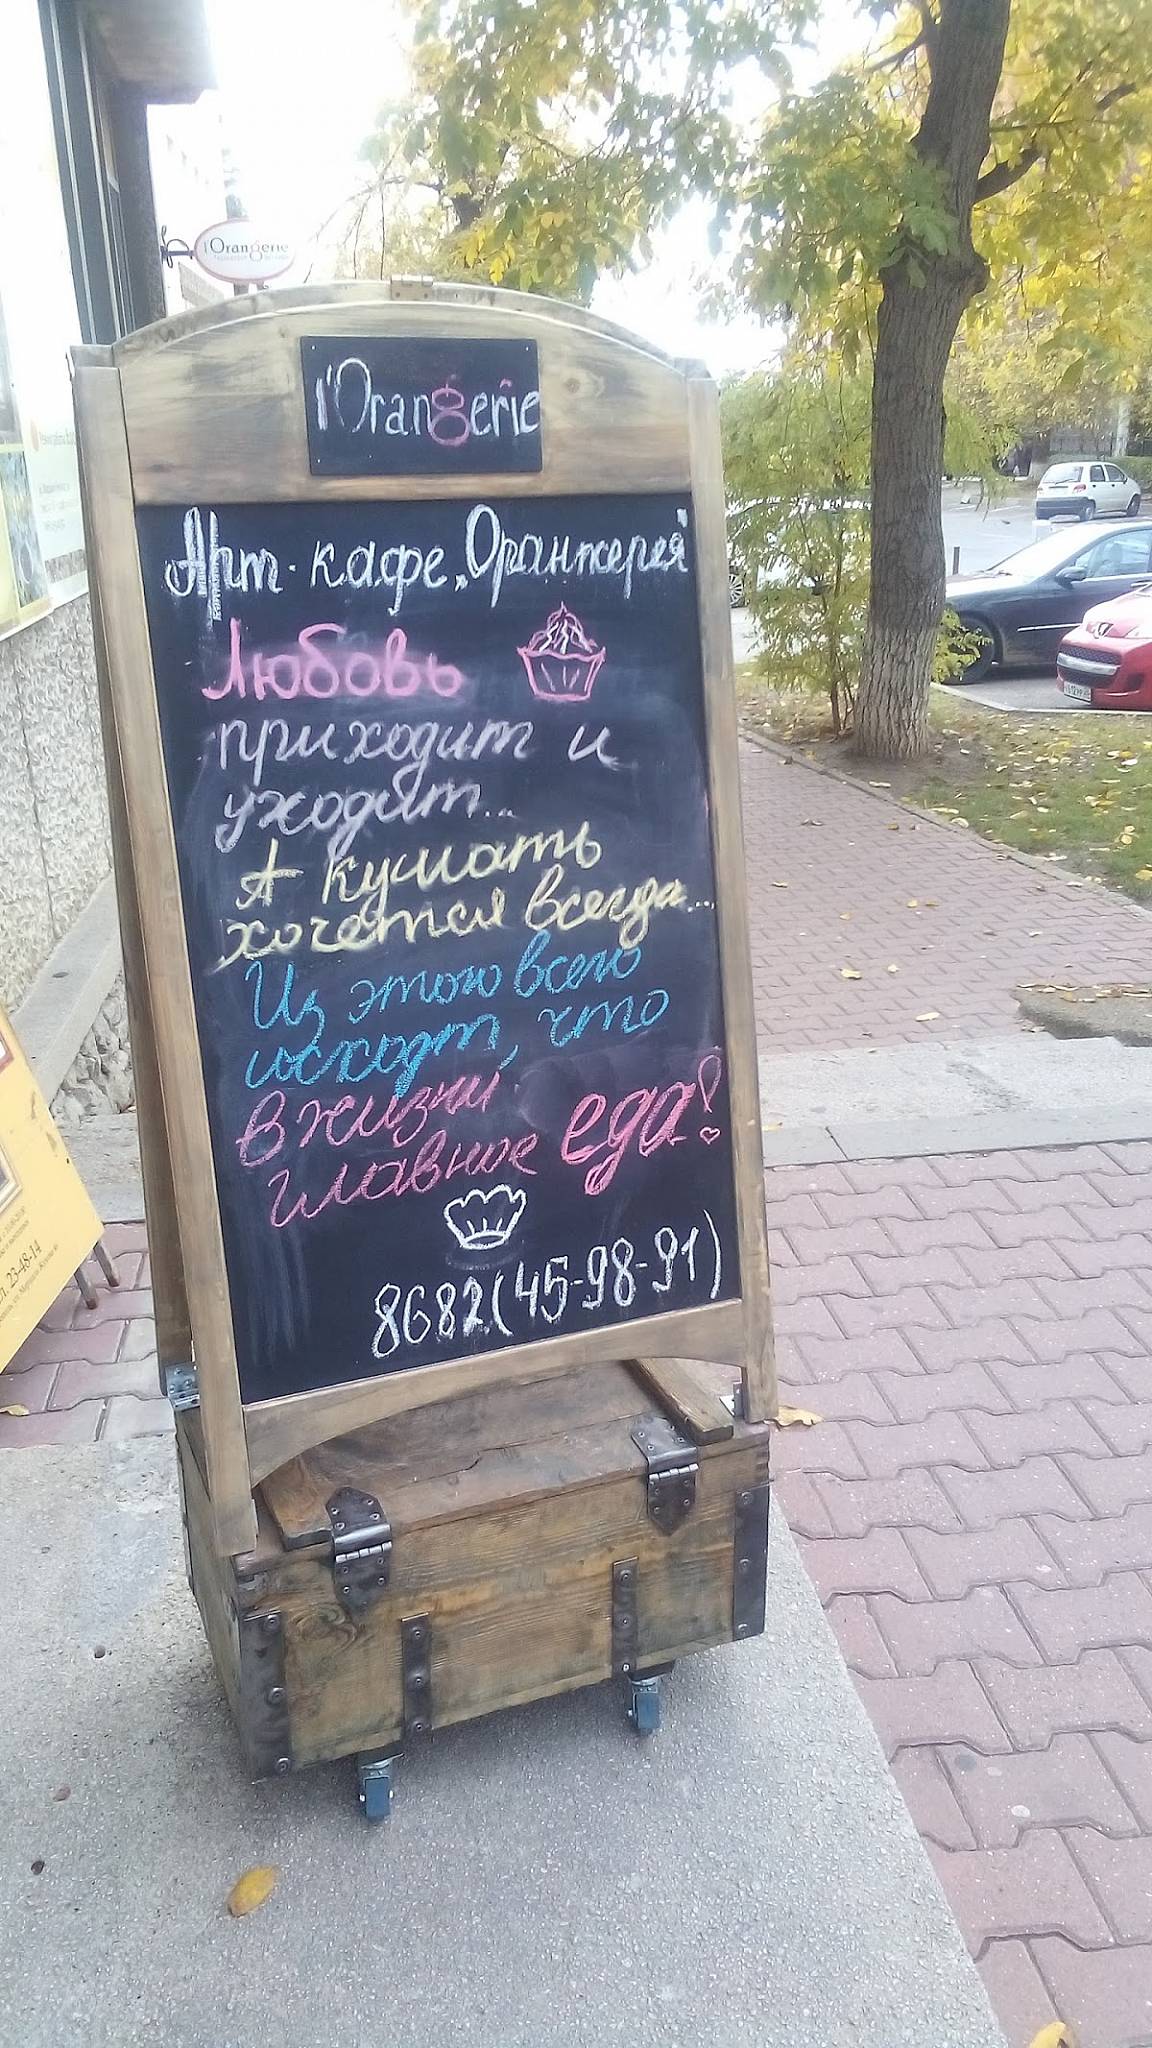 l'Orangerie
l'Orangerie
Арт-кафе „Оранжерея"
Любовь
приходит и
уходит...
А кушать
хочется всегда...
Из этого всего
исходт, что
в жизни
главное еда!
8682(45-98-91)
23-48-14